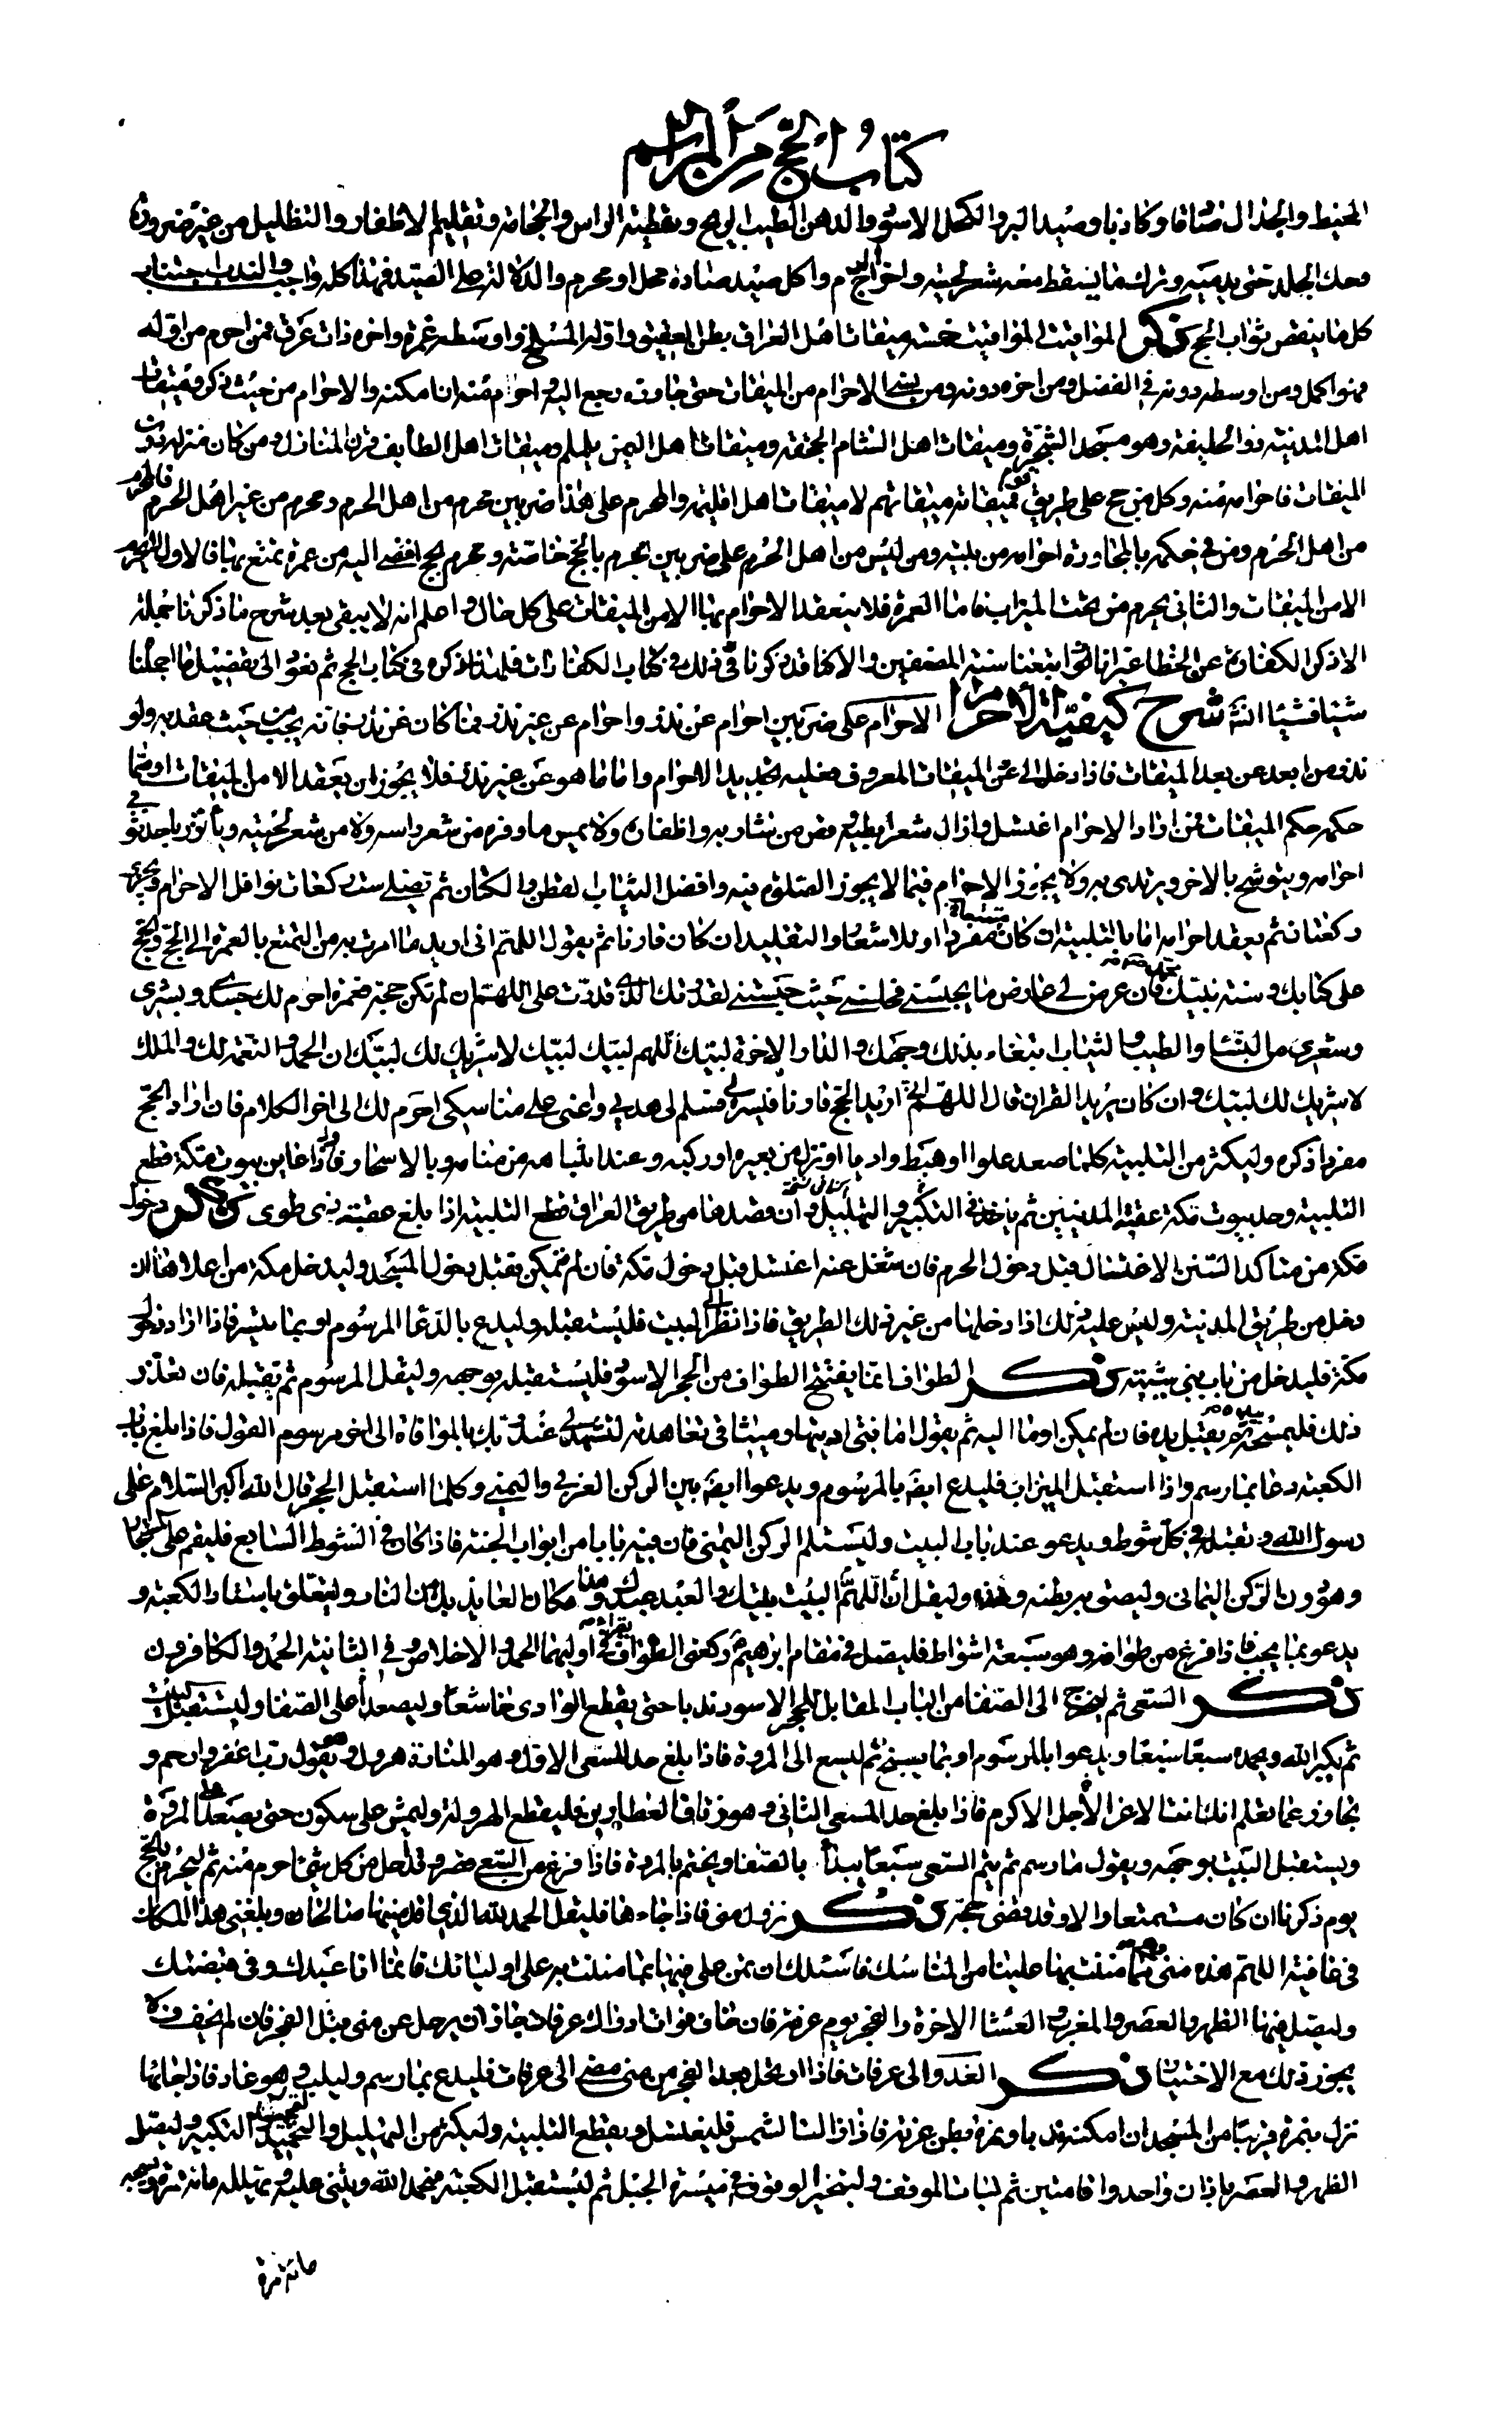 كتاب الحج من المراسم
المخيط والجدال صادقا وكاذبا وصيد البر والكحل الاسود والدهن الطيب الريح وتغطية الراس والحجامة وتقليم الاظفار والتظليل من غير ضرورة
وحك الجلد حتى يدميه وترك ما يسقط معه شعر لحيته واخراج الدم واكل صيد صاده محل او محرم والدلالة على الصيد فهذا كله واجب والندب اجتناب
كل ما ينقص ثواب الحج ذكر المواقيت المواقيت خمسة ميقات اهل العراق بطن العقيق واوله المسلخ واوسطه غمرة واخره ذات عرق فمن احرم من اوله
فهو اكمل ومن اوسطه دونه في الفضل ومن اخره دونه ومن نسي الاحرام من الميقات حتى جاوزه رجع اليه واحرم منه ان امكنه والا احرم من حيث ذكر وميقات
اهل المدينة ذو الحليفة وهو مسجد الشجرة وميقات اهل الشام الجحفة وميقات اهل اليمن يلملم وميقات اهل الطايف قرن المنازل ومن كان منزله دون
الميقات فاحرامه منه وكل من حج على طريق قوم فميقاته ميقاتهم لا ميقات اهل اقليمه والمحرم على هذا ضربين محرم من اهل الحرم ومحرم من غير اهل الحرم فالمحرم
من اهل الحرم ومن في حكمه بالمجاورة احرامه من بيته ومن ليس من اهل الحرم على ضربين محرم بالحج خاصة ومحرم بحج افضى اليه من عمرة تمتع بها فالاول لا يحرم
الا من الميقات والثاني يحرم من تحت الميزاب فاما العمرة فلا ينعقد الاحرام بها الا من الميقات على كل حال واعلم انه لا يبقى بعد شرح ما ذكرنا جملته
الا ذكر الكفارة عن الخطا غير انا لو اتبعنا سنة المصنفين والا فقد ذكرنا ذلك في كتاب الكفارات فلهذا لم نذكره في كتاب الحج ثم نعود الى تفصيل ما اجملنا
شيئا فشيئا ان شاء الله شرح كيفية الاحرام الاحرام على ضربين احرام عن نذر واحرام عن غير نذر فما كان عن نذر فانه يجب من حيث عقد به ولو
نذر من ابعد من بعد الميقات فاذا دخل الى عن الميقات المعروف فعليه تجديد الاحرام واما ما هو عن غير نذر فلا يجوز ان يعقد الا من الميقات او ما
حكمه حكم الميقات فمن اراد الاحرام اغتسل وازال شعر ابطيه وقص من شاربه واظفاره ولا يمس ما وفره من شعر راسه ولا من شعر لحيته ويأتزر باحد ثوبي
احرامه ويتوشح بالاخر ويرتدي به ولا يجوز الاحرام فيما لا يجوز الصلوة فيه وافضل الثياب القطن والكتان ثم يصلي ست ركعات نوافل الاحرام ويجزيه
ركعتان ثم يعقد احرامه اما بالتلبية ان كان متمتعا او مفردا او بالاشعار والتقليد ان كان قارنا ثم يقول اللهم اني اريد ما امرت به من التمتع بالعمرة الى الحج
على كتابك وسنة نبيك فان عرض لي عارض ما يحبسني فحلني حيث حبستني لقدرتك الذي قدرت علي اللهم ان لم تكن حجة فعمرة احرم لك جسدي وبشري
وشعري من النساء والطيب والثياب ابتغاء بذلك وجهك والدار الاخرة لبيك اللهم لبيك لبيك لا شريك لك لبيك ان الحمد والنعمة لك والملك
لا شريك لك لبيك وان كان يريد القران قال اللهم اني اريد الحج قارنا فيسره لي وتسلم لي هديي واعني على مناسكي احرم لك الى اخر الكلام فان اراد الحج
مفردا ذكره وليكثر من التلبية كلما صعد علوا او هبط واديا او نزل من بعيره او ركبه وعند انتباهه من منامه وبالاسحار فاذا عاين بيوت مكة قطع
التلبية وحد بيوت مكة عقبة المدنيين ثم ياخذ في التكبير والتهليل وان قصدها من طريق العراق قطع التلبية اذا بلغ عقبة ذي طوى ذكر دخول
مكة من متاكد السنن الاغتسال قبل دخول الحرم فان شغل عنه اغتسل قبل دخول مكة فان لم يتمكن فقبل دخول المسجد وليدخل مكة من اعلاها ان
دخل من طريق المدينة وليس عليه ذلك اذا دخلها من غير ذلك الطريق فاذا نظر الى البيت فليستقبله وليدع بالدعا المرسوم او بما تيسر فاذا اراد دخول
مكة فليدخل من باب بني شيبة ذكر الطواف انما يفتتح الطواف من الحجر الاسود فليستقبله بوجهه وليقل المرسوم ثم يقبله فان تعذر
ذلك فليمسحه بيده ثم يقبل يده فان لم يمكن اوما اليه ثم يقول امانتي اديتها وميثاقي تعاهدته لتشهد لي عند ربك بالموافاة الى اخر مرسوم القول فاذا بلغ باب
الكعبة دعا بما رسم واذا استقبل الميزاب فليدع ايضا بالمرسوم ويدعوا ايضا بين الركن الغربي واليمني وكلما استقبل الحجر قال الله اكبر السلام على
رسول الله ويقبله في كل شوط ويدعو عند باب البيت وليستلم الركن اليمني فان فيه بابا من ابواب الجنة فاذا كان في الشوط السابع فليقم على المستجار
وهو دون الركن اليماني وليلصق به بطنه وخده وليقل اللهم البيت بيتك والعبد عبدك وهذا مكان العايذ بك من النار وليتعلق باستار الكعبة و
يدعو بما يحب فاذا فرغ من طوافه وهو سبعة اشواط فليصل في مقام ابرهيم ركعتي الطواف يقرا في اوليهما الحمد والاخلاص وفي الثانية الحمد والكافرون
ذكر السعي ثم ليخرج الى الصفا من الباب المقابل للحجر الاسود ندبا حتى يقطع الوادي خاشعا وليصعد على الصفا وليستقبل البيت
ثم يكبر الله ويحمده سبعا سبعا ويدعوا بالمرسوم او بما يسنح ثم ليسع الى المروة فاذا بلغ حد المسعى الاول وهو المنارة هرول وهو يقول رب اغفر وارحم و
تجاوز عما تعلم انك انت الاعز الاجل الاكرم فاذا بلغ حد المسعى الثاني وهو زقاق العطارين فليقطع الهرولة وليمش على سكون حتى يصعد على المروة
ويستقبل البيت بوجهه ويقول ما رسم ثم يتم السعي سبعا يبدا بالصفا ويختم بالمروة فاذا فرغ من السبع قصر وقد احل من كل شي احرم منه ثم ليحرم بالحج
يوم ذكرنا ان كان متمتعا والا وقد قضى حجه ذكر نزول منى فاذا جاء هنا فليقل الحمد لله الذي اقدمنيها صالحا وبلغني هذا المكان
في عافية اللهم هذه منى وهي مما مننت بها علينا من المناسك فاسئلك ان تمن علي فيها بما مننت به على اوليائك فانما انا عبدك وفي قبضتك
وليصل فيها الظهر والعصر والمغرب والعشا الاخرة والفجر يوم عرفة فان خاف فوات ادراك عرفات جاز ان يرحل عن منى قبل الفجر فان لم يخف فلا
يجوز ذلك مع الاختيار ذكر الغدو الى عرفات فاذا ارتحل بعد الفجر من منى مضى الى عرفات فليدع بما رسم وليلب وهو غاد فاذا جاءها
نزل بنمرة قريبا من المسجد ان امكنه ندبا ونمرة بطن عرنة فاذا زالت الشمس فليغتسل ويقطع التلبية وليكثر من التهليل والتحميد والتمجيد والتكبير وليصل
الظهر والعصر باذان واحد واقامتين ثم ليات الموقف وليتخير الوقوف في ميسرة الجبل ثم ليستقبل الكعبة فيحمد الله ويثني عليه ويهلله مائة مرة ويسبحه
مائة مرة